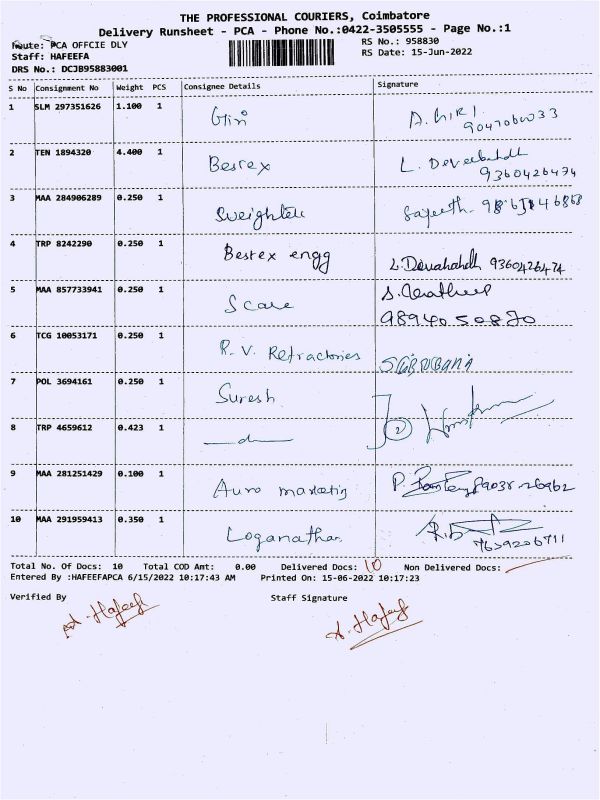 THE PROFESSIONAL COURIERS, Coimbatore
Delivery Runsheet - PCA - Phone No.:0422-3505555 - Page No.:1
Route: PCA OFFCIE DLY
RS No.: 958830
Staff: HAFEEFA
RS Date: 15-Jun-2022
DRS No.: DCJB95883001
S No Consignment No Weight PCS Consignee Details Signature
1 SLM 297351626 1.100 1 Giri A. GIRI
2 TEN 1894320 4.400 1 Bestex L.
9360426474
3 MAA 284906289 0.250 1
4 TRP 8242290 0.250 1 Bestex engg L. 9360426474
5 MAA 857733941 0.250 1 Scare
9894050870
6 TCG 10053171 0.250 1 R. V. Refractories
7 POL 3694161 0.250 1 Suresh
8 TRP 4659612 0.423 1 2
9 MAA 281251429 0.100 1 Auro P.
10 MAA 291959413 0.350 1 Loganathan
7639206711
Total No. Of Docs: 10 Total COD Amt: 0.00 Delivered Docs: 10 Non Delivered Docs:
Entered By :HAFEEFAPCA 6/15/2022 10:17:43 AM Printed On: 15-06-2022 10:17:23
Verified By Staff Signature
A. Hafeef A. Hafeef